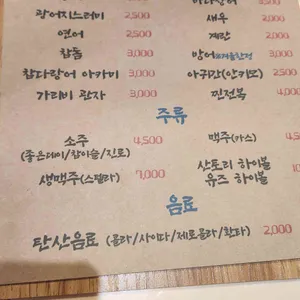 광어지느러미 2,500
새우 2,000
연어 2,500
계란 2,000
참돔 3,000
방어 3,000
참다랑어 아카미 3,000
아귀간(안키모) 2,500
가리비 관자 3,000
찐전복 4,000
주류
소주 4,500
(좋은데이/참이슬/진로)
맥주(카스)
생맥주(스텔라) 7,000
산토리 하이볼
유즈 하이볼
음료
탄산음료 (콜라/사이다/제로콜라/환타) 2,000